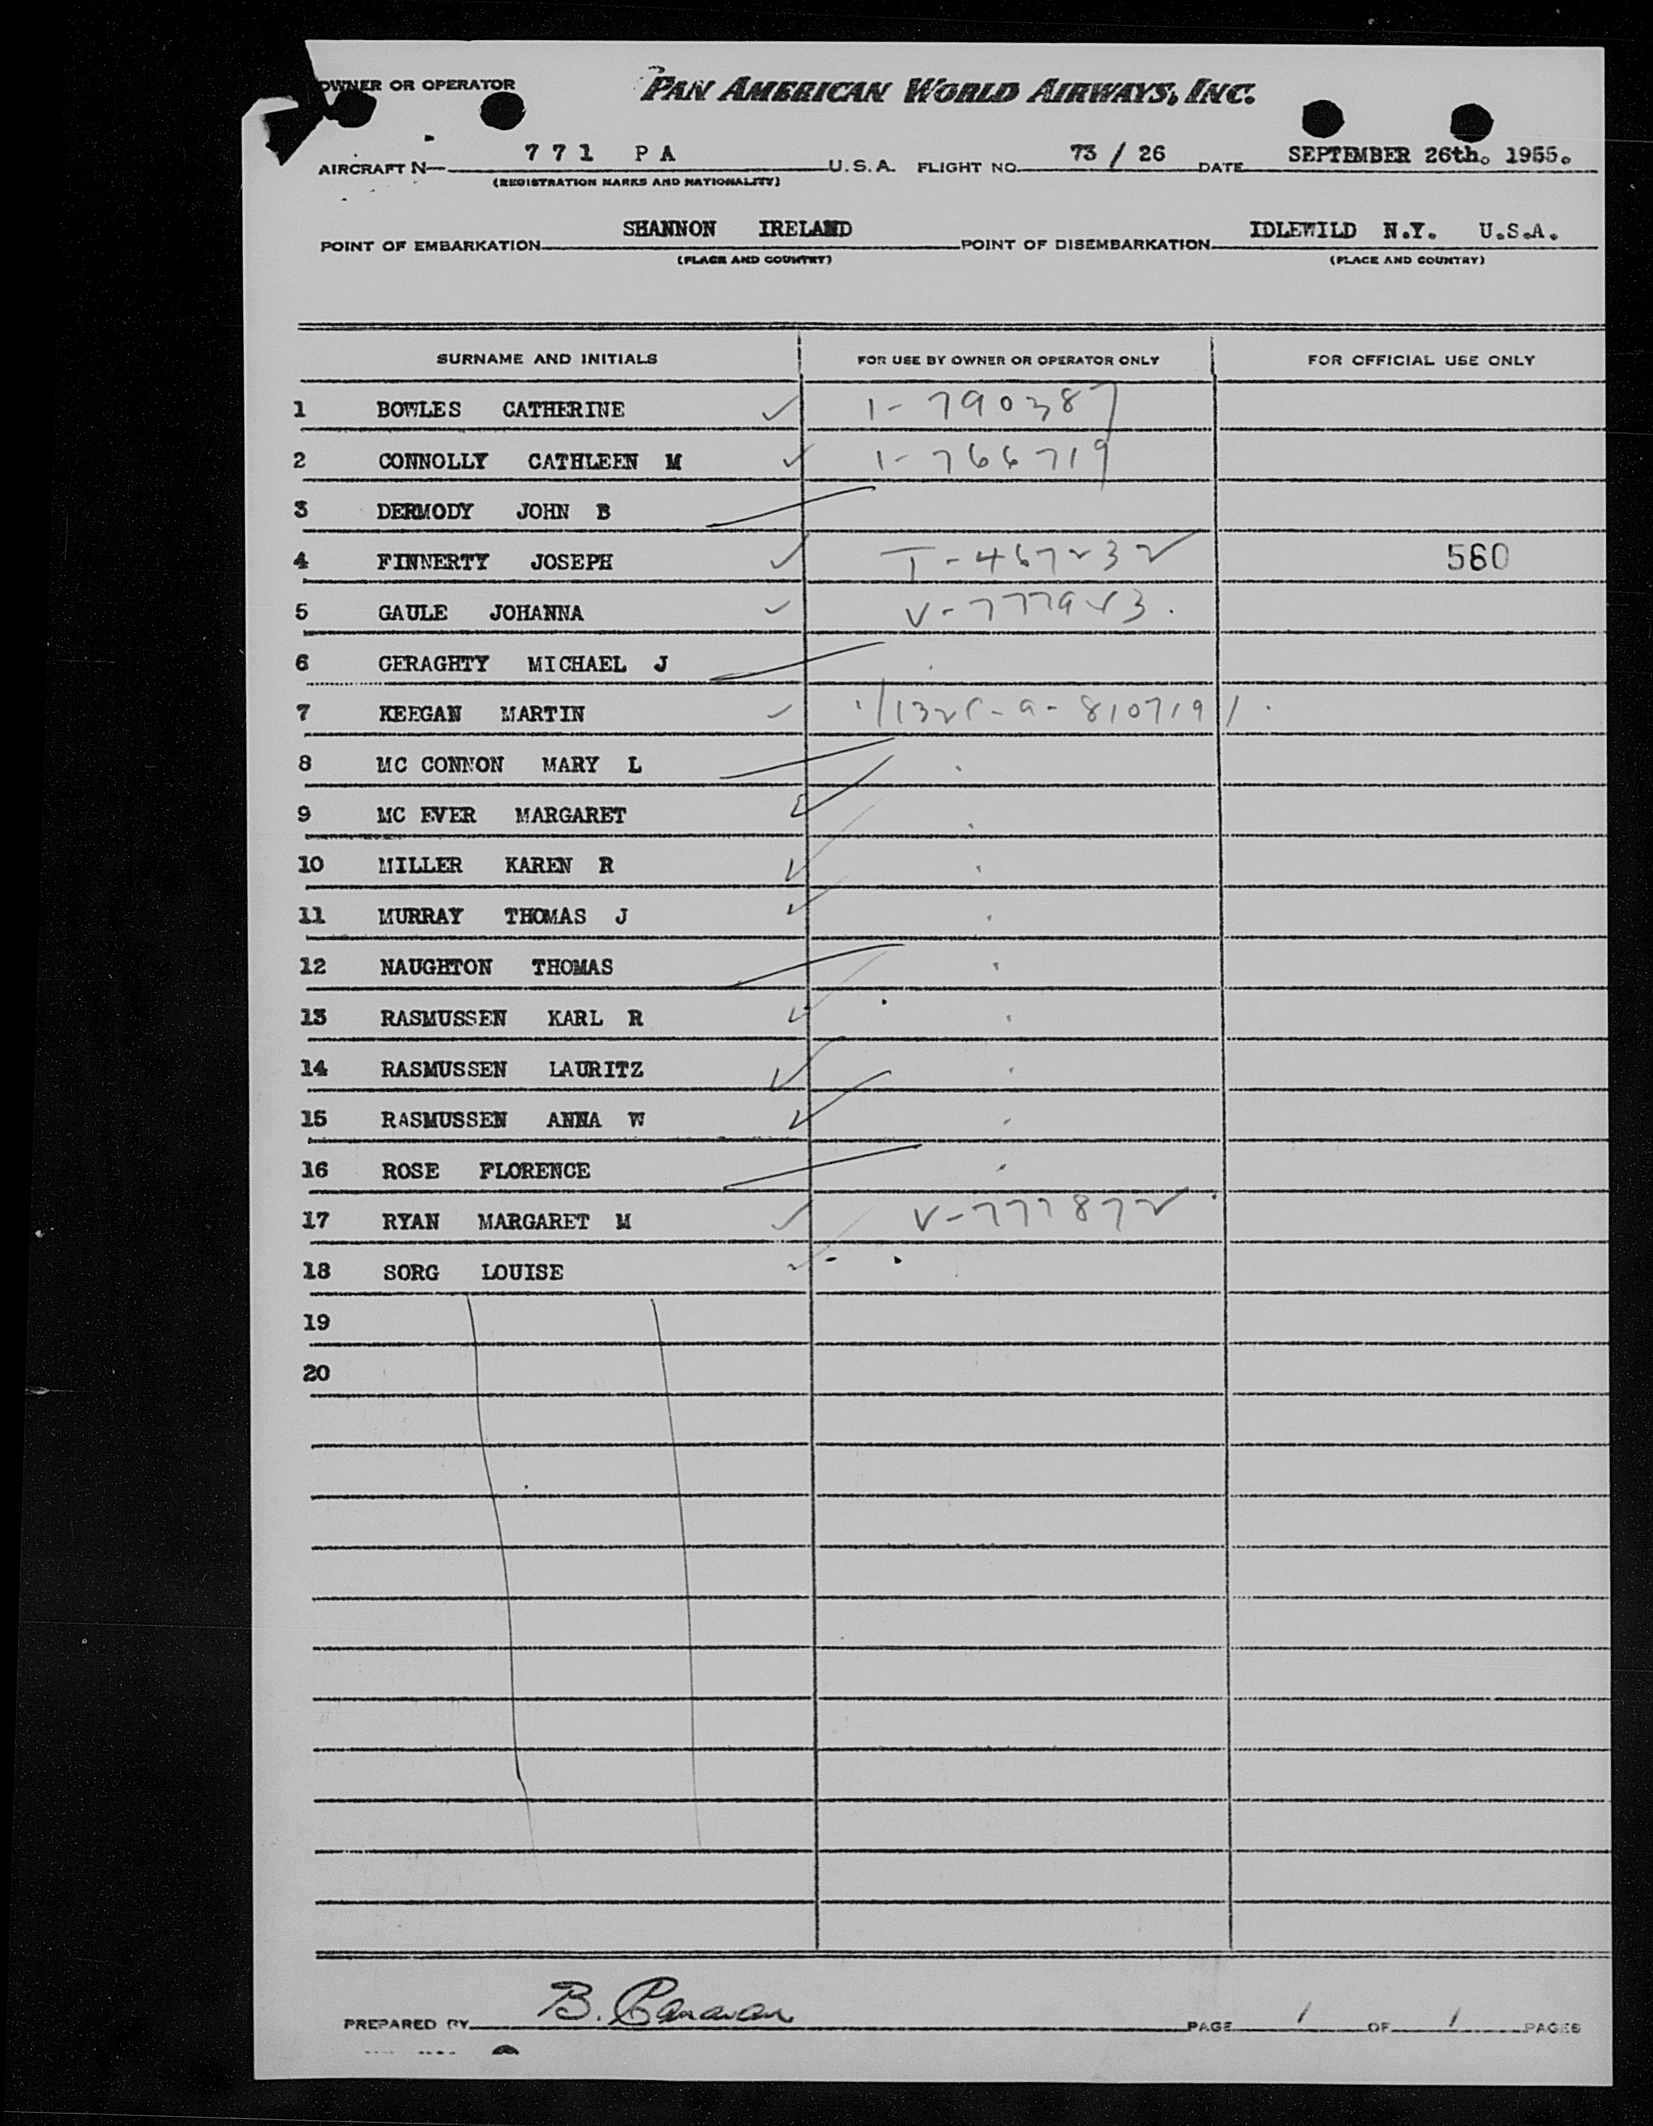 OWNER OR OPERATOR PAN AMERICAN WORLD AIRWAYS, INC.
AIRCRAFT N— 771 PA U.S.A. FLIGHT NO. 73 / 26 DATE SEPTEMBER 26th. 1955.
(REGISTRATION MARKS AND NATIONALITY)
POINT OF EMBARKATION SHANNON IRELAND POINT OF DISEMBARKATION IDLEWILD N.Y. U.S.A.
(PLACE AND COUNTRY) (PLACE AND COUNTRY)
SURNAME AND INITIALS FOR USE BY OWNER OR OPERATOR ONLY FOR OFFICIAL USE ONLY
1 BOWLES CATHERINE ✓ 1-790387
2 CONNOLLY CATHLEEN M ✓ 1-766719
3 DERMODY JOHN B
4 FINNERTY JOSEPH ✓ T-467232 560
5 GAULE JOHANNA ✓ V-777923.
6 GERAGHTY MICHAEL J
7 KEEGAN MARTIN ✓
8 MC CONNON MARY L
9 MC EVER MARGARET
10 MILLER KAREN R ✓
11 MURRAY THOMAS J ✓
12 NAUGHTON THOMAS
13 RASMUSSEN KARL R ✓
14 RASMUSSEN LAURITZ ✓
15 RASMUSSEN ANNA W ✓
16 ROSE FLORENCE
17 RYAN MARGARET M ✓ V-777872
18 SORG LOUISE ✓
19
20
PREPARED BY B. Canavan PAGE 1 OF 1 PAGES